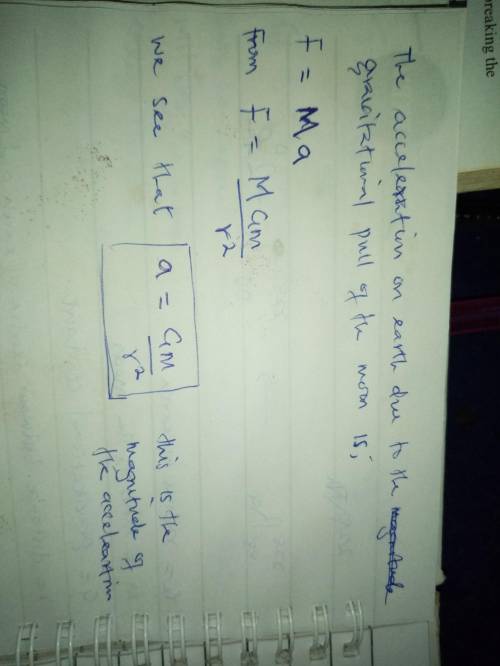 reaking the
The acceleration on earth due to the magnitude
gravitational pull of the moon is;
F = Ma
From F = MGm
r2
We see that a = Gm
r2
this is the
magnitude of
the acceleration